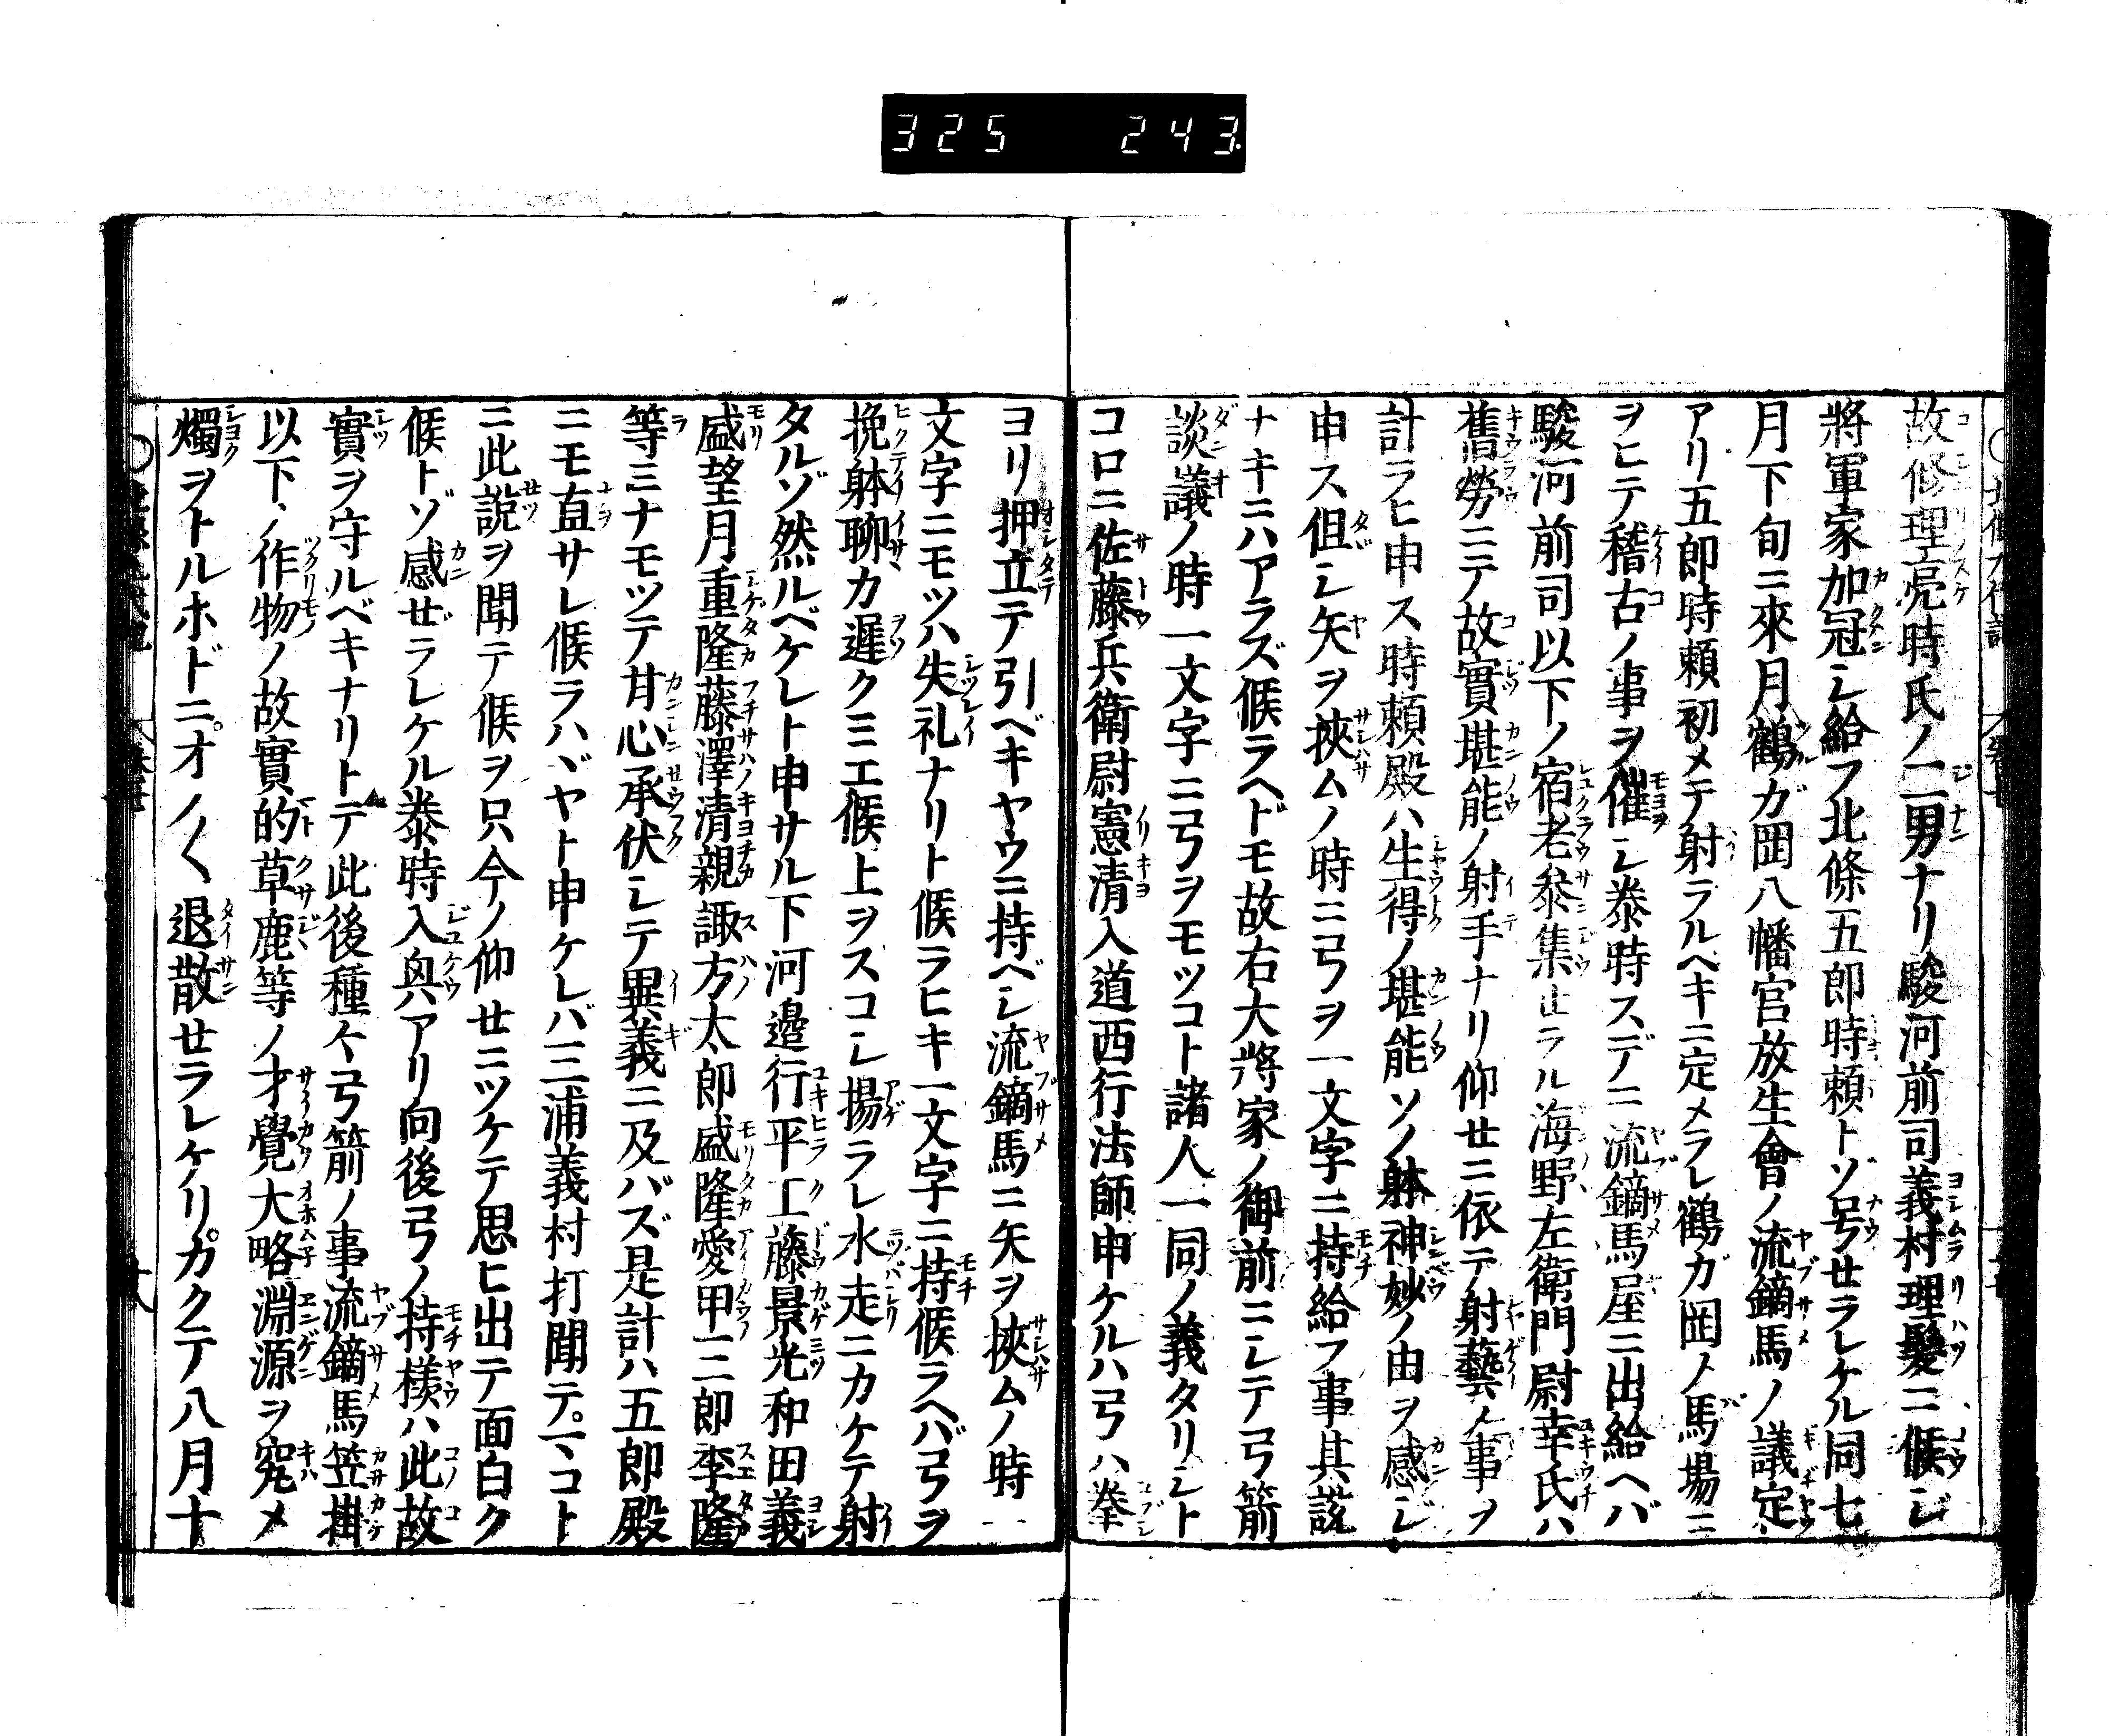 325 243
故修理亮時氏ノ二男ナリ駿河前司義村理髮ニ候シ
將軍家加冠シ給フ北條五郎時頼トゾ号セラレケル同七
月下旬ニ來月鶴ガ岡八幡宮放生會ノ流鏑馬ノ議定
アリ五郎時頼初メテ射ラルヘキニ定メラレ鶴ガ岡ノ馬場ニ
ヲヒテ稽古ノ事ヲ催シ泰時スデニ流鏑馬屋ニ出給ヘバ
駿河前司以下ノ宿老參集セラル海野左衛門尉幸氏ハ
舊勞ニテ故實堪能ノ射手ナリ仰せニ依テ射藝ノ事ヲ
計ラヒ申ス時頼殿ハ生得ノ堪能ソノ躰神妙ノ由ヲ感ジ
申ス但シ矢ヲ挾ムノ時ニ弓ヲ一文字ニ持給フ事其謂
ナキニハアラズ候ラヘドモ故右大將家ノ御前ニシテ弓箭
談議ノ時一文字ニ弓ヲモツコト諸人一同ノ義タリシト
コロニ佐藤兵衛尉憲清入道西行法師申ケルハ弓ハ拳
ヨリ押立テ引ベキヤウニ持ベシ流鏑馬ニ矢ヲ挾ムノ時一
文字ニモツハ失礼ナリト候ラヒキ一文字ニ持候ラヘバ弓ヲ
挽躰聊カ遲クミエ候上ヲスコシ揚ラレ水走ニカケテ射
タルゾ然ルベケレト申サル下河邉行平工藤景光和田義
盛望月重隆藤澤清親諏方太郎盛隆愛甲三郎季隆
等ミナモツテ甘心承伏シテ異義ニ及バズ是計ハ五郎殿
ニモ直サレ候ラハヾヤト申ケレバ三浦義村打聞テ一コト
ニ此說ヲ聞テ候ヲ只今ノ仰せニツケテ思ヒ出テ面白ク
候トゾ感ぜラレケル泰時入興アリ向後弓ノ持樣ハ此故
實ヲ守ルベキナリトテ此後種々弓箭ノ事流鏑馬笠掛
以下ノ作物ノ故實的草鹿等ノ才覺大略淵源ヲ究メ
燭ヲトルホドニオノ〱退散せラレケリカクテ八月十